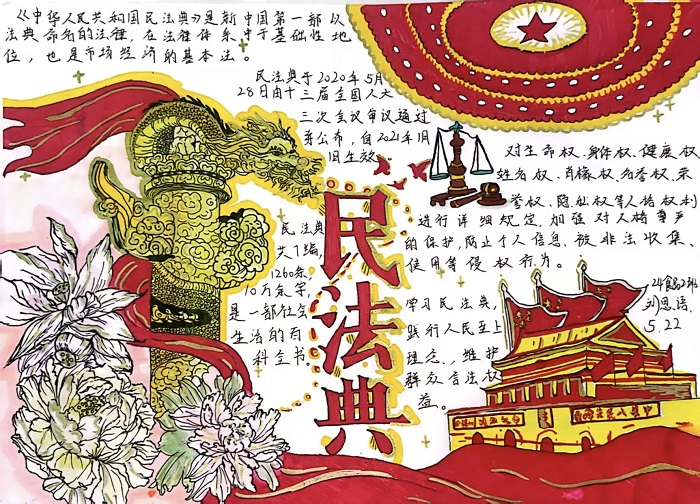 《中华人民共和国民法典》是新中国第一部以
法典命名的法律，在法律体系中于基础性地
位，也是市场经济的基本法。
民法典于2020年5月
28日由十三届全国人大
三次会议审议通过
并公布，自2021年1月
1日生效
对生命权、身体权、健康权
姓名权、肖像权、名誉权、荣
誉权、隐私权等人格权利
进行详细规定，加强对人格尊严
的保护，防止个人信息、被非法收集、
使用等侵权行为。
民法典
民法典
共7编，
1260条
10万条字，
是一部社会
生活的百
科全书。
学习民法典，
践行人民至上
理念、，维护
群众合法权
益。
刘思语
5.22